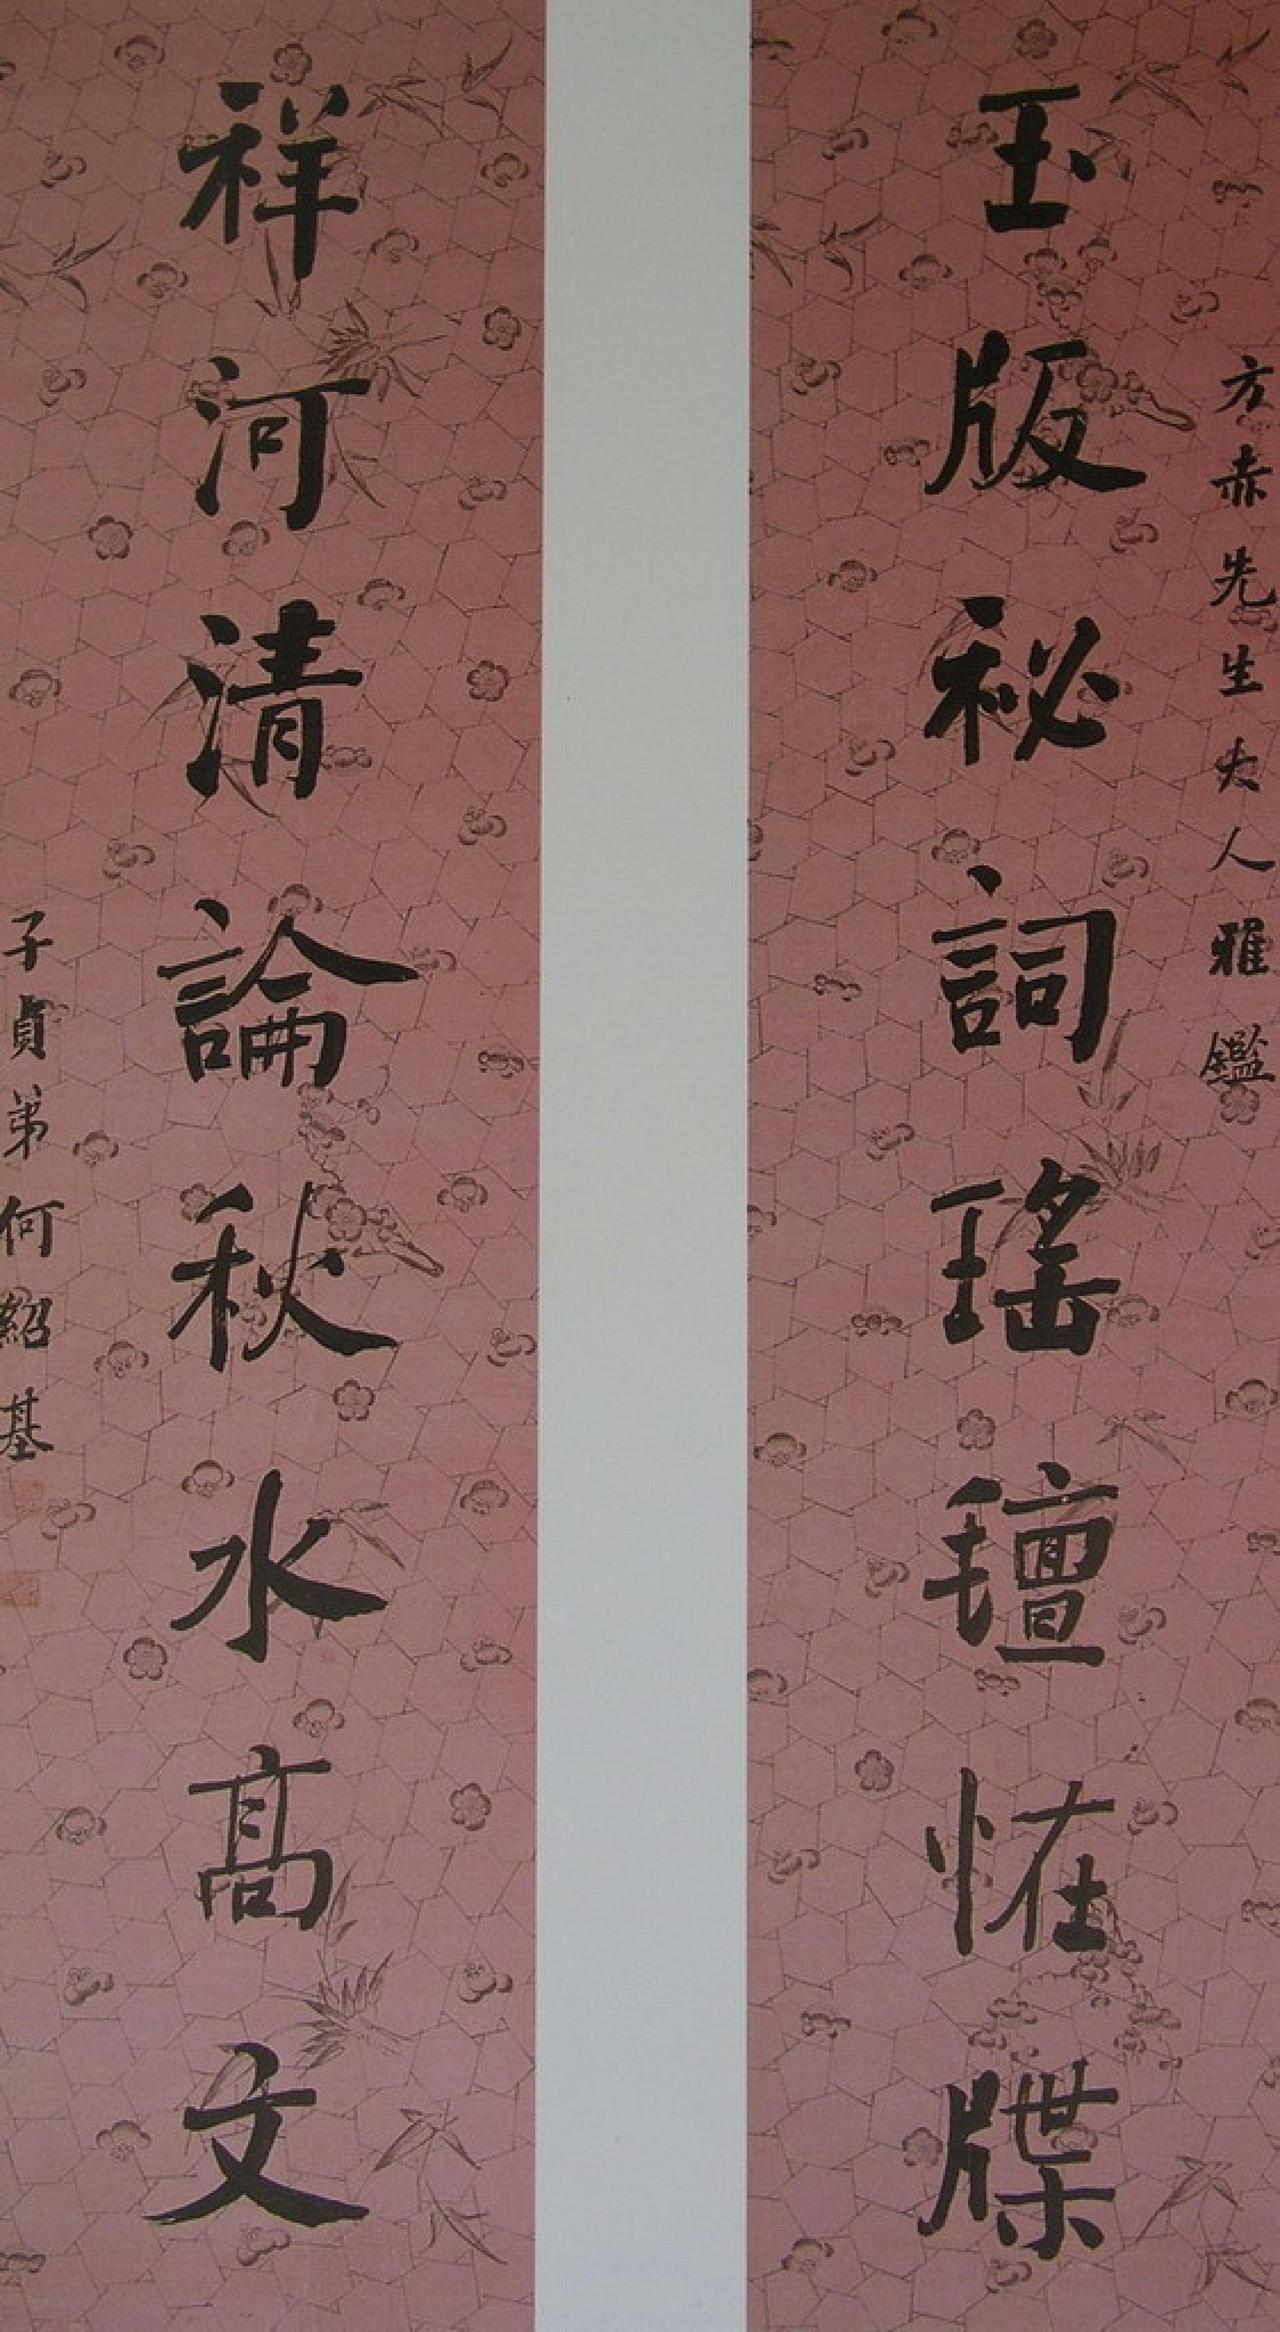 方赤先生大人雅鑑
玉版祕詞瑤氊恠牒
祥河清論秋水高文
子貞弟何紹基